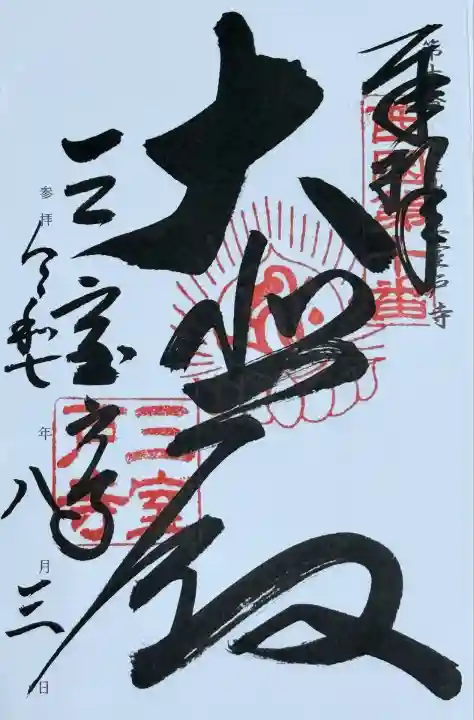 奉拝
西国第十番
大悲殿
三室戸寺
三室戸寺
参拝 令和七年八月三日